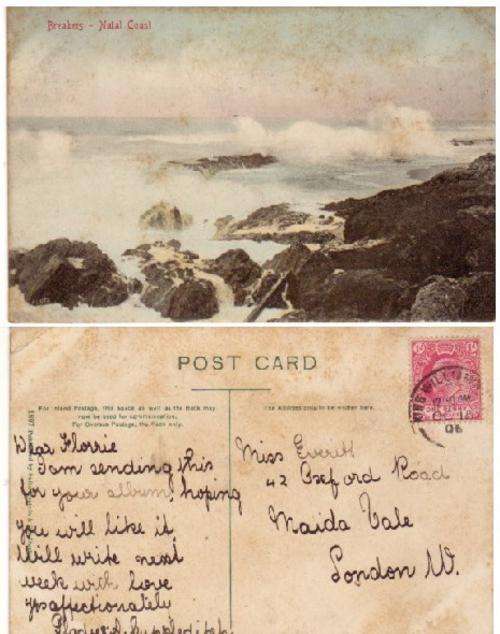 Breakers - Natal Coast
POST CARD
For Inland Postage, this space as well as the Back may
now be used for communication.
For Overseas Postage, the Face only.
The Address only to be written here.
ONE PENNY
OC 18
06
Dear Florrie
I am sending this
for your album, hoping
you will like it
Will write next
week with love
yrs affectionately
Miss Everett
42 Oxford Road
Maida Vale
London W.